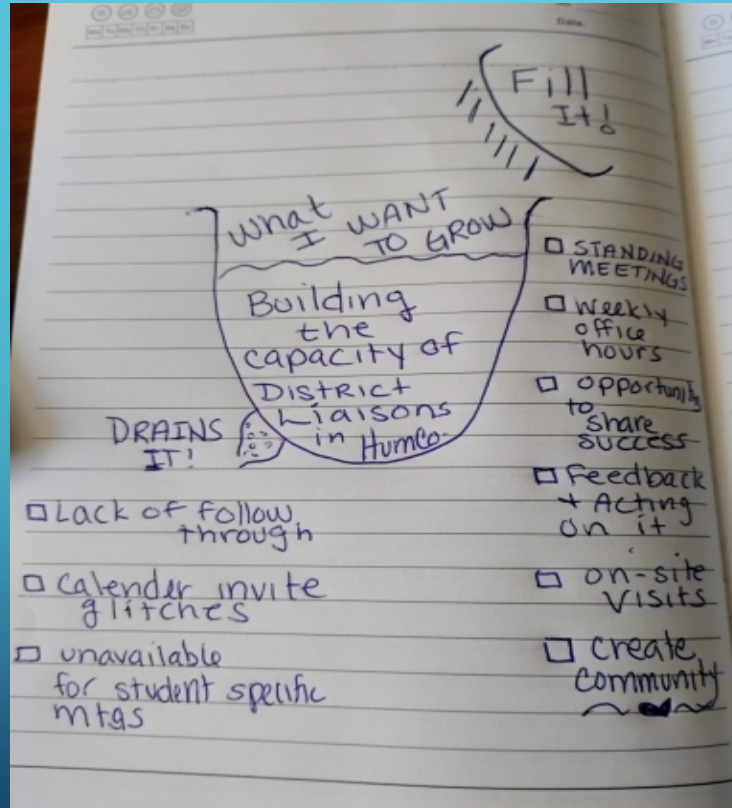 Date
Fill
It!
What
I WANT
TO GROW
Building
the
capacity of
District
Liaisons
in HumCo.
DRAINS
IT!
Lack of follow
through
Calender invite
glitches
unavailable
for student specific
mtgs
STANDING
MEETINGS
Weekly
office
hours
opportunity
to
share
success
Feedback
+ Acting
on it
on-site
visits
Create
community